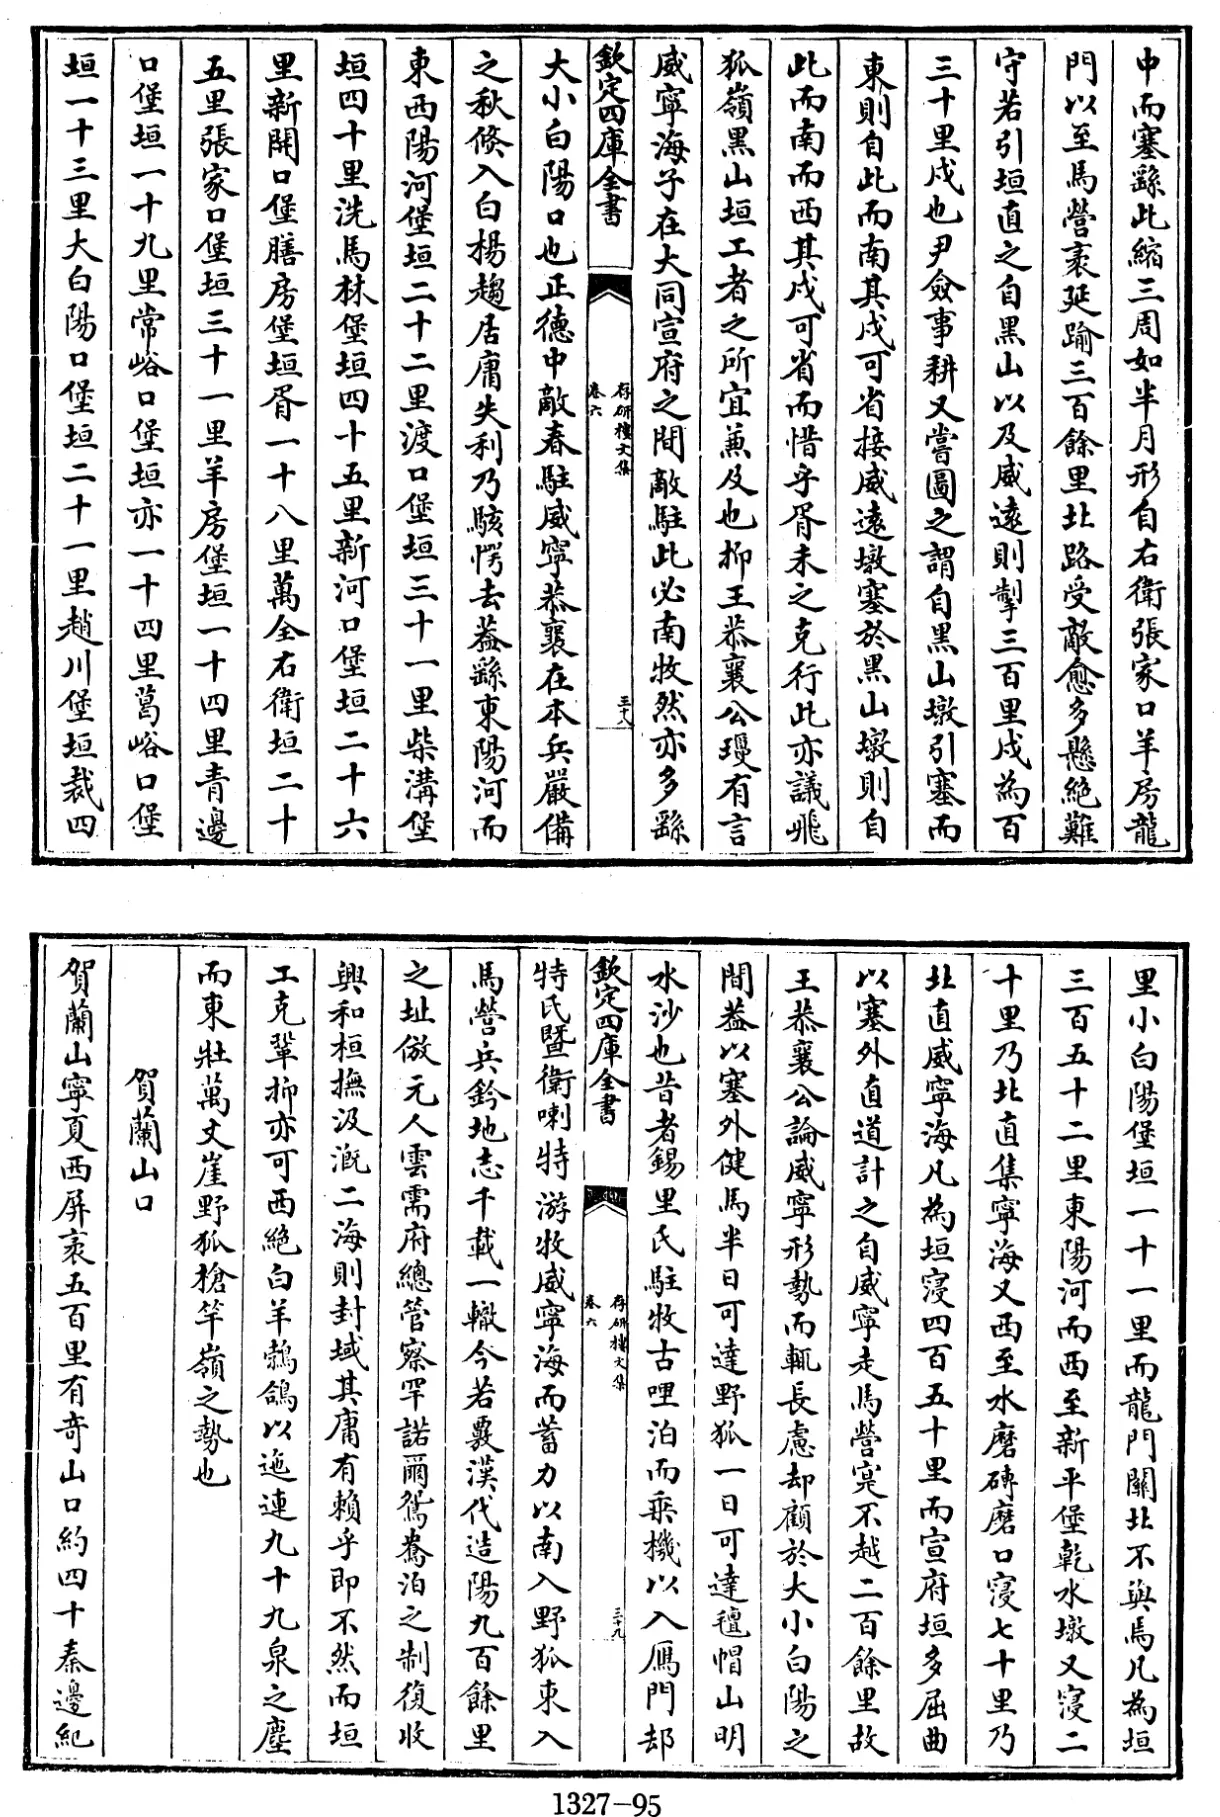 中而塞繇此縮三周如半月形自右衛張家口羊房龍
門以至馬營袤延踰三百餘里北路受敵愈多懸絶難
守若引垣直之自黒山以及威逺則掣三百里戍為百
三十里戍也尹僉事耕又嘗圖之謂自黒山墩引塞而
東則自此而南其戍可省接威逺墩塞於黒山墩則自
此而南而西其戍可省而惜乎胥未之克行此亦議飛
狐嶺黒山垣工者之所宜兼及也抑王恭襄公瓊有言
威寧海子在大同宣府之間敵駐此必南牧然亦多繇
欽定四庫全書
存研樓文集
卷六
三十八
大小白陽口也正徳中敵春駐威寧恭襄在本兵嚴備
之秋倐入白楊趨居庸失利乃駭愕去葢繇東陽河而
東西陽河堡垣二十二里渡口堡垣三十一里柴溝堡
垣四十里洗馬林堡垣四十五里新河口堡垣二十六
里新開口堡膳房堡垣胥一十八里萬全右衛垣二十
五里張家口堡垣三十一里羊房堡垣一十四里青邊
口堡垣一十九里常峪口堡垣亦一十四里葛峪口堡
垣一十三里大白陽口堡垣二十一里趙川堡垣裁四
里小白陽堡垣一十一里而龍門闗北不與馬凡為垣
三百五十二里東陽河而西至新平堡乾水墩又寖二
十里乃北直集寧海又西至水磨磚磨口寖七十里乃
北直威寧海凡為垣寖四百五十里而宣府垣多屈曲
以塞外直道計之自威寧走馬營寔不越二百餘里故
王恭襄公論威寧形勢而輒長慮却顧於大小白陽之
間葢以塞外健馬半日可達野狐一日可達氊帽山明
水沙也昔者錫里氏駐牧古哩泊而乘機以入鴈門却
欽定四庫全書
存研樓文集
卷六
三十九
特氏暨衛喇特游牧威寧海而蓄力以南入野狐東入
馬營兵鈐地志千載一轍今若覈漢代造陽九百餘里
之址倣元人雲需府總管察罕諾爾鴛鴦泊之制復收
興和桓撫汲漑二海則封域其庸有賴乎即不然而垣
工克鞏抑亦可西絶白羊鵓鴿以迤連九十九泉之塵
而東壯萬丈崖野狐槍竿嶺之勢也
賀蘭山口
賀蘭山寧夏西屏袤五百里有竒山口約四十秦邊紀
1327-95